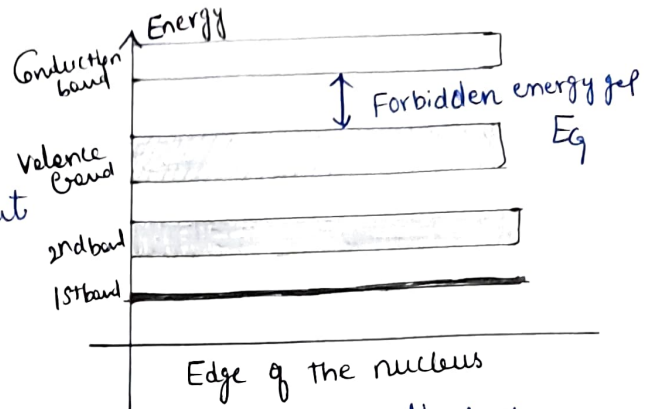 Energy
Conduction
band
Forbidden energy gap
EG
Valence
band
ut
2nd band
1st band
Edge of the nucleus